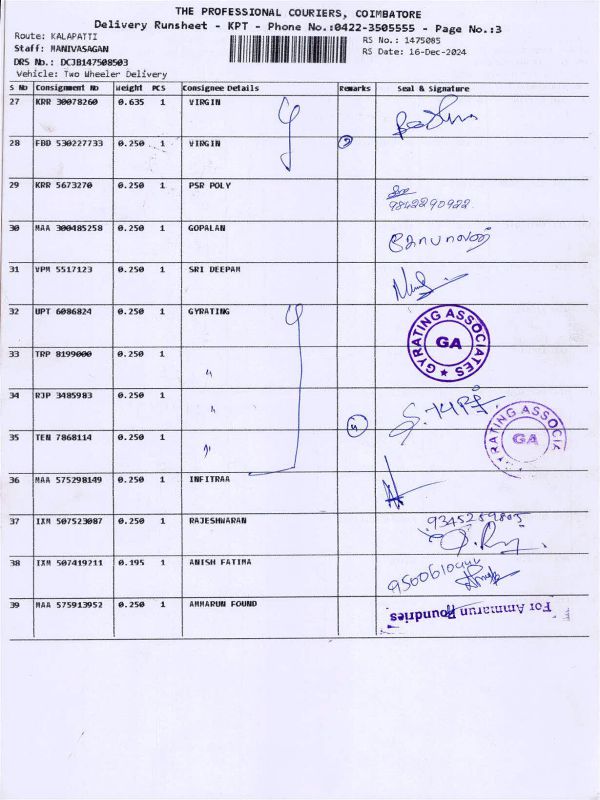 THE PROFESSIONAL COURIERS, COIMBATORE
Delivery Runsheet - KPT - Phone No.:0422-3505555 - Page No.:3
Route: KALAPATTI
RS No.: 1475085
Staff: MANIVASAGAN
RS Date: 16-Dec-2024
DRS No.: DCJB147508503
Vehicle: Two Wheeler Delivery
S No Consignment No Weight PCS Consignee Details Remarks Seal & Signature
27 KRR 30078260 0.635 1 VIRGIN
28 FBD 530227733 0.250 1 VIRGIN 2
29 KRR 5673270 0.250 1 PSR POLY
9842290922
30 MAA 300485258 0.250 1 GOPALAN
31 VPM 5517123 0.250 1 SRI DEEPAM
32 UPT 6086824 0.250 1 GYRATING
GYRATING ASSOCIATES
GA
33 TRP 8199000 0.250 1 "
34 RJP 3485983 0.250 1 "
GYRATING ASSOCIA
GA
35 TEN 7868114 0.250 1 "
36 MAA 575298149 0.250 1 INFITRAA
37 IXM 507523087 0.250 1 RAJESHWARAN
38 IXM 507419211 0.195 1 ANISH FATIMA
39 MAA 575913952 0.250 1 AMMARUN FOUND
For Ammarun Foundries